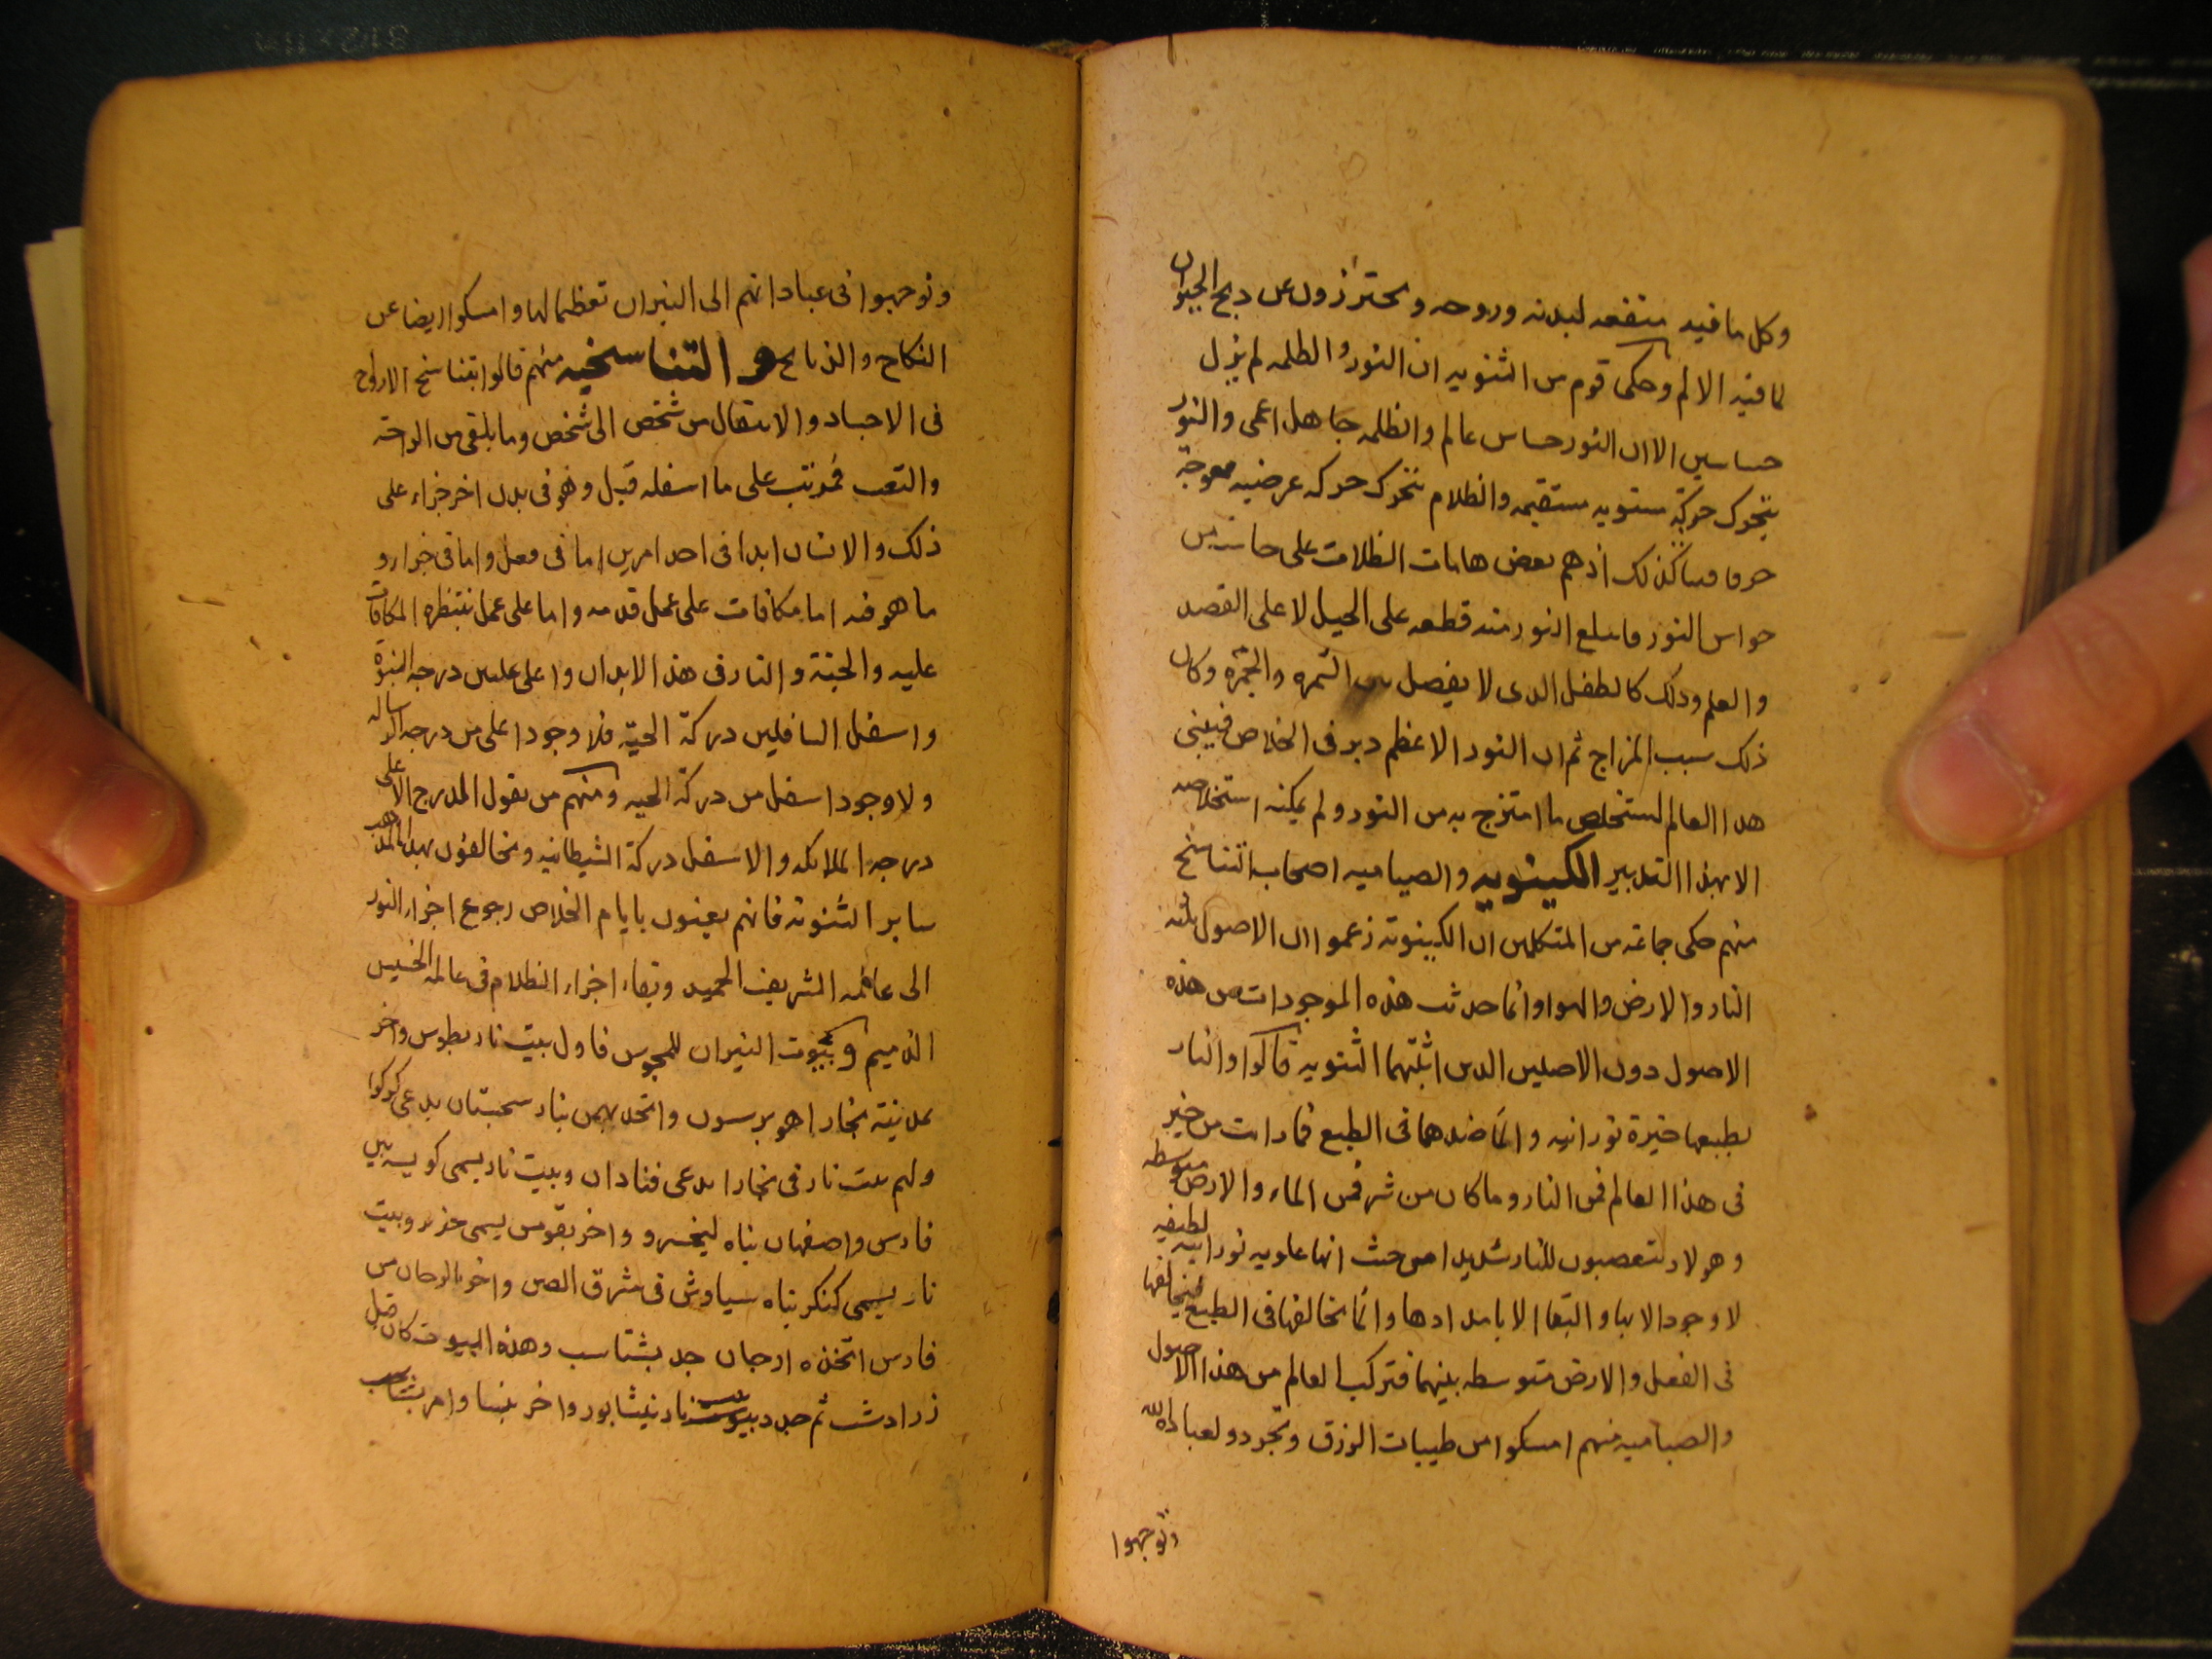 وكل ما فيه منفعه لبدنه وروحه ويحترزون عن ذبح الحيوان
لما فيه الالم وحكى قوم من الثنويه ان النور والظلمه لم يزل
حساسين الا ان النور حساس عالم والظلمه جاهل اعمى والنور
يتحرك حركة مستويه مستقيمه والظلام يتحرك حركه عرضيه معوجة
كذلك اذ هم بعض هامات الظلامت على حاشيه من
حواس النور فابتلع النور منه قطعه على الجهل لا على القصد
والعلم وذلك كالطفل الذى لا يفصل بين التمره والجمره وكان
ذلك سبب المزاج ثم ان النور الاعظم دبر فى الخلاص فيبنى
هذا العالم ليستخلص ما امتزج به من النور ولم يمكنه استخلاصه
الا بهذا التدبير الكينويه والصياميه اصحاب التناسخ
منهم حكى جماعة من المتكلمين ان الكينوية زعموا ان الاصول ثلثه
النار والارض والهوا وانما حدثت هذه الموجودات من هذه
الاصول دون الاصلين الذين اثبتهما الثنويه قالوا والنار
بطبعها خيرة نورانيه والما ضدهما فى الطبع فما رات من خير
فى هذا العالم فمن النار وما كان من شر فمن الماء والارض متوسطه
وهولاء يتعصبون للنار شديدا من حيث انها علويه نورانيه لطيفه
لا وجود الا بها والبقا الا بامدادها والما يخالفها فى الطبع فيخالفها
فى الفعل والارض متوسطه بينهما فتركب العالم من هذا الاصول
والصياميه منهم امسكوا من طيبات الرزق وتجردو لعباداه لله
وتوجهوا
وتوجهوا فى عباداتهم الى النيران تعظيما لها وامسكوا ايضا عن
النكاح والذبايح و التناسخيه منهم قالوا بتناسخ الارواح
فى الاجساد والانتقال من شخص الى شخص وما يلقى من الراحة
والتعب فمرتب على ما اسفله قبل وهو فى بدن اخر جزاء على
ذلك والانسان ابدا فى احد امرين اما فى فعل واما فى جزاء و
ما هو فيه اما مكافات على عمل قدمه واما على عمل ينتظره المكافات
عليه والجنة والنار فى هذ الابدان واعلى عليين درجه النبوة
واسفل السافلين دركة الحية فلا وجود اعلى من درجه الرساله
ولا وجود اسفل من دركة الحيه ومنهم من يقول المدرج الاعلى
درجه الملائكه والاسفل دركة الشيطانيه ويخالفون بهذا المذهب
ساير الثنوية فانهم يعنون بايام الخلاص رجوع اجزاء النور
الى عالمه الشريف الحميد وبقاء اجزاء الظلام فى عالمه الخسيس
الذميم و بيوت النيران للمجوس فاول بيت نار بطوس واخر
بمدينة بخارا هو بردسون واتخذ بهمن بنار سجستان يدعى كوكوا
ولهم بيت نار فى بخارا يدعى فناذان وبيت نار يسمى كويسه بين
فارس واصفهان بناه ليخسرو واخر بقومس يسمى جزير وبيت
نار يسمى كنكر بناه سياوش فى مشرق الصين واخر بارجان من
فارس اتخذه ارجان جد بشتاسب وهذه البيوت كان قبل
زرادشت ثم جدد بيت نار نيشابور واخر بنسا وامر بشتاسب